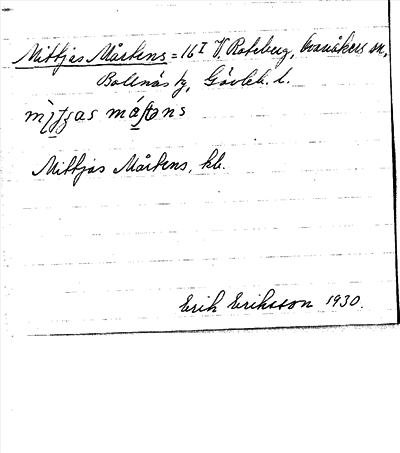 Mittjas Mårtens = 16 I V. Roteberg, Ovanåkers sn,
Bollnäs tg, Gävleb. l.
Mittjas Mårtens, kb.
Erik Eriksson 1930.